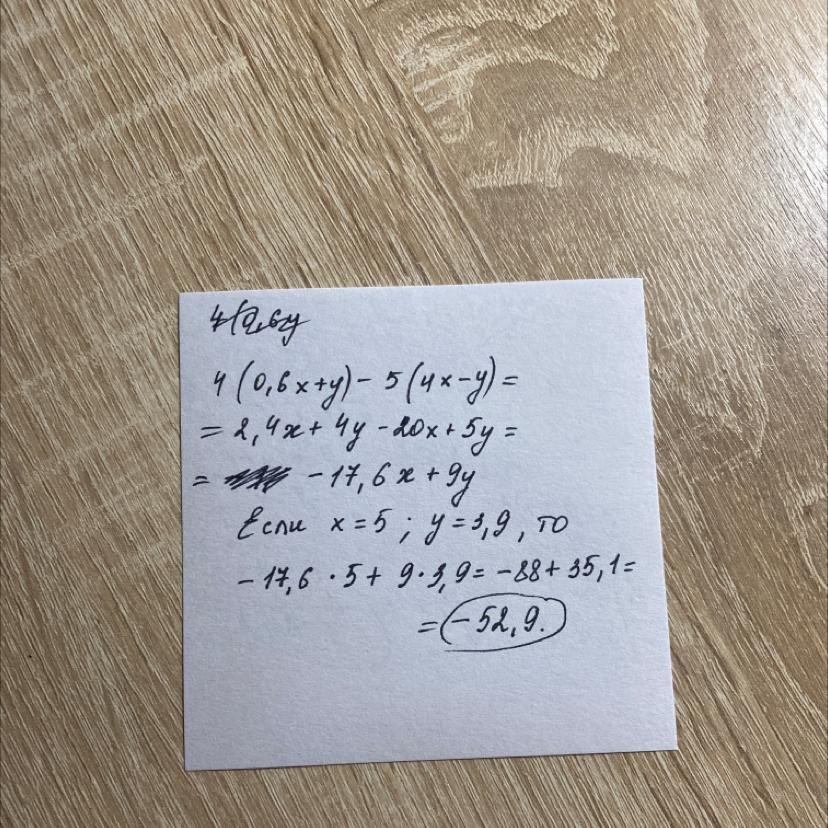 4(0,6y
4(0,6x+y)- 5(4x-y)=
= 2,4x+ 4y -20x+5y=
= -17,6x+9y
Если x=5; y=3,9, то
-17,6 · 5+ 9·3,9= -88+35,1=
= -52,9.